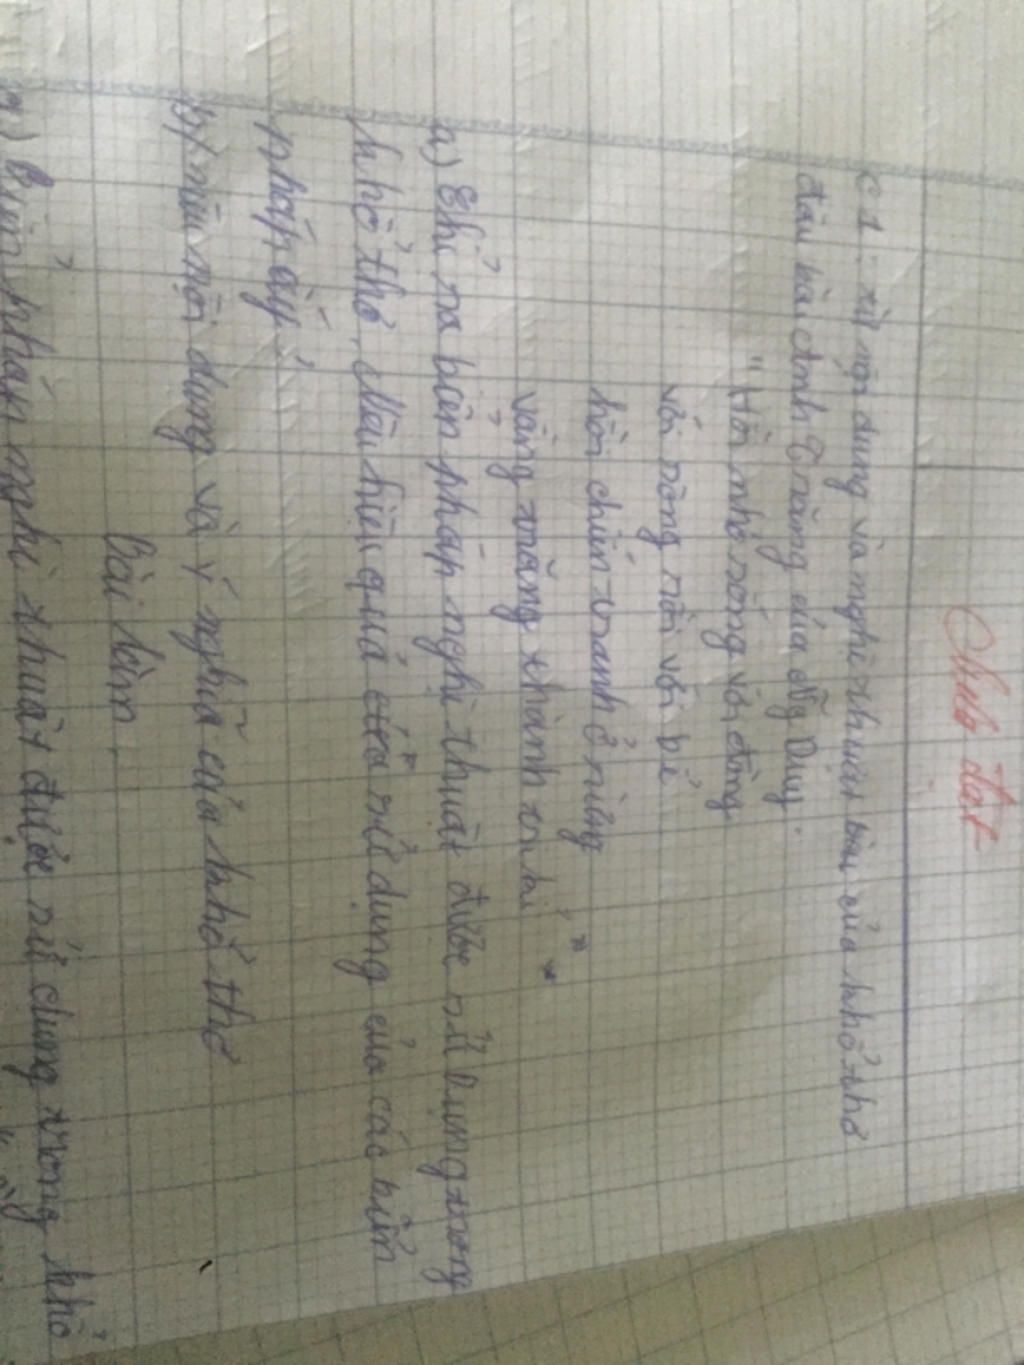 Chủ đạt
C1: từ nội dung và nghệ thuật sau của khổ thơ
đầu bài Ánh Trăng của Nguyễn Duy.
"Hồi nhỏ sống với đồng
với sông rồi với bể
hồi chiến tranh ở rừng
vầng trăng thành tri kỉ"
a) Chỉ ra biện pháp nghệ thuật được sử dụng trong
khổ thơ, nêu hiệu quả của sử dụng của các biện
pháp ấy?
b) nêu nội dung và ý nghĩa của khổ thơ
bài làm
a) biện pháp nghệ thuật được sử dụng trong khổ